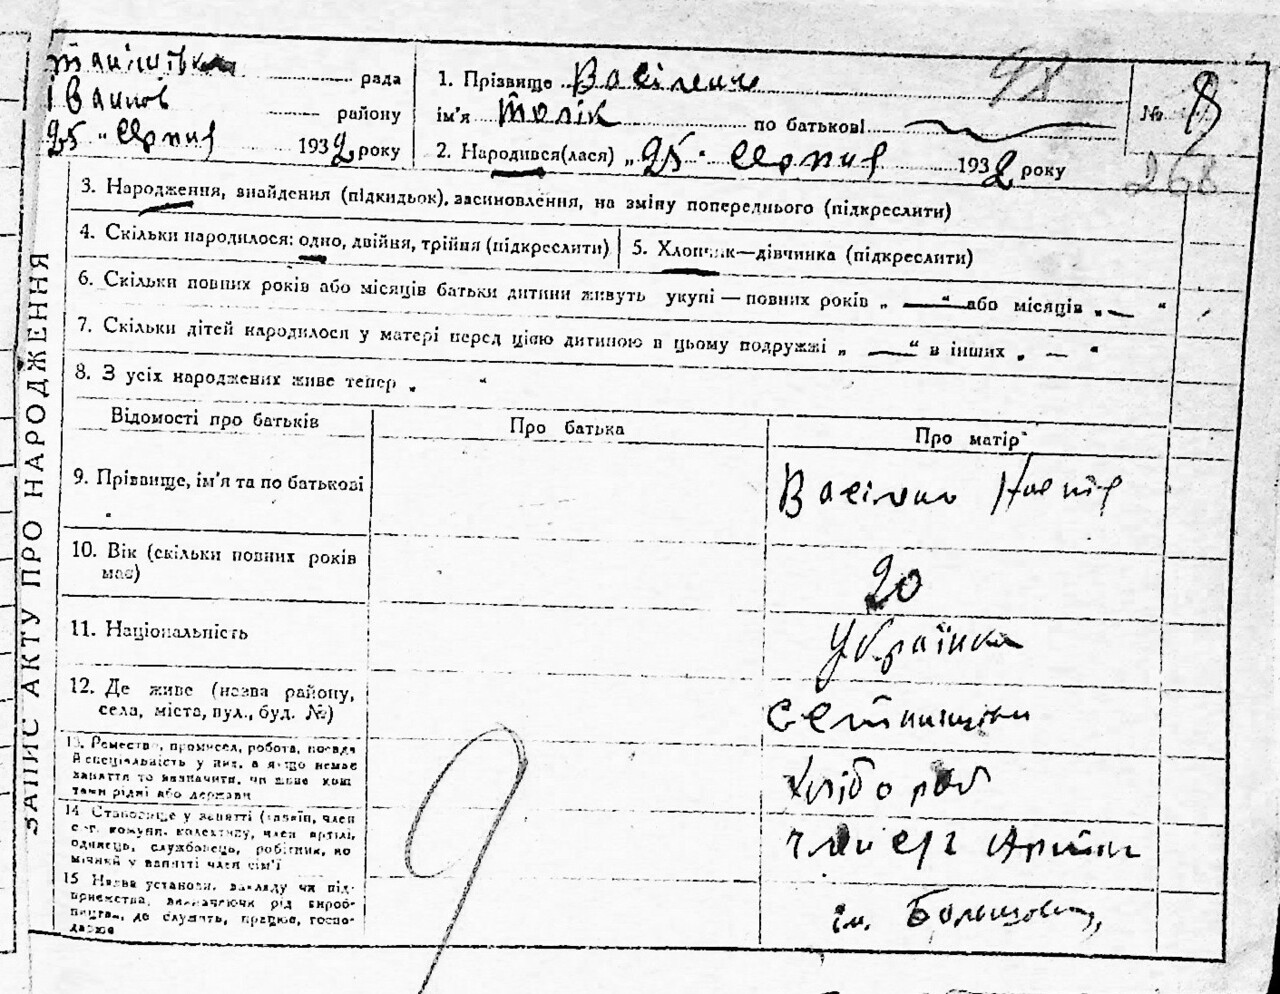 рада
району
25 " Серпня 1932 року
1. Прізвище Василенко
ім'я Толік по батькові
2. Народився(лася) „ 25 " Серпня 1932 року
№ 9
268
3. Народження, знайдення (підкидьок), засиновлення, на зміну попереднього (підкреслити)
4. Скільки народилося: одно, двійня, трійня (підкреслити)
5. Хлопчик—дівчинка (підкреслити)
6. Скільки повних років або місяців батьки дитини живуть укупі — повних років „ — " або місяців „ — "
7. Скільки дітей народилося у матері перед цією дитиною в цьому подружжі „ — " в інших „ — "
8. З усіх народжених живе тепер „ "
ЗАПИС АКТУ ПРО НАРОДЖЕННЯ
Відомості про батьків
Про батька
Про матір
9. Прізвище, ім'я та по батькові
10. Вік (скільки повних років
має)
20
11. Національність
Українка
12. Де живе (назва району,
села, міста, вул., буд. №)
13. Ремество, промисел, робота, посада
й спеціальність у них, а якщо немає
заняття то зазначити, чи живе кош
тами рідні або держави
Хлібороб
14 Становище у занятті (хазяїн, член
с.-г. комуни, колективу, член артілі,
одинець, службовець, робітник, по
мічний у занятті член сім'ї
член с/г Артіли
15 Назва установи, закладу чи під-
приємства, визначаючи рід вироб-
ництва, де служить, працює, госпо-
дарює
ім. Більшовиц,